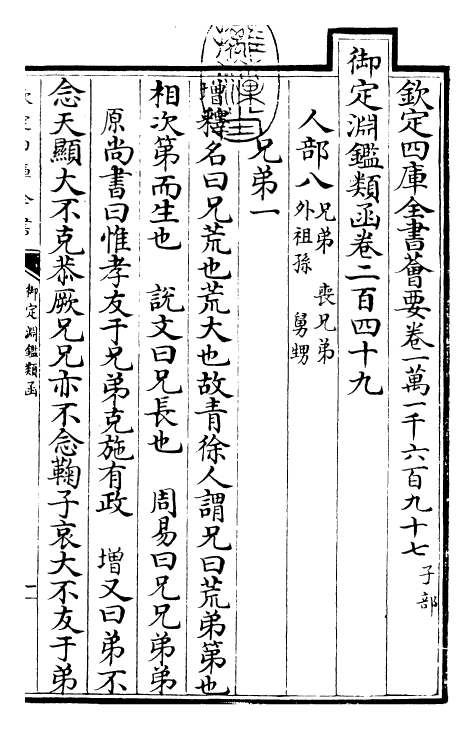 欽定四庫全書薈要卷一萬一千六百九十七 子部
御定淵鑑類函卷二百四十九
人部八 兄弟 喪兄弟
外祖孫 舅甥
兄弟一
增釋名曰兄荒也荒大也故青徐人謂兄曰荒弟第也
相次第而生也 說文曰兄長也 周易曰兄兄弟弟
原尚書曰惟孝友于兄弟克施有政 增又曰弟不
念天顯大不克恭厥兄兄亦不念鞠子哀大不友于弟
御定淵鑑類函
一